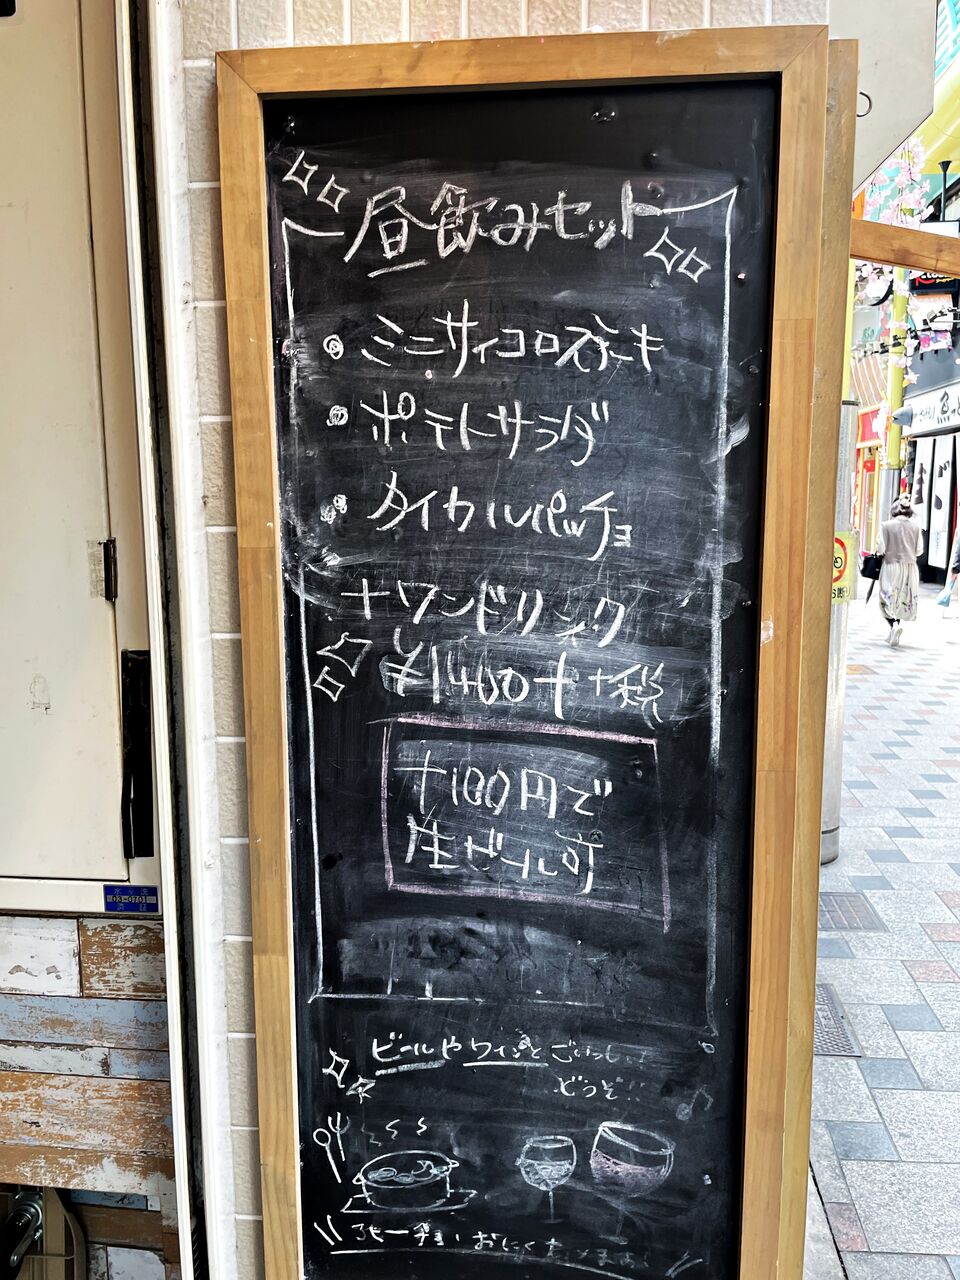 昼飲みセット
ミニサイコロステーキ
ポテトサラダ
タイカルパッチョ
+ワンドリンク
¥1400 +税
+100円で
生ビール可
ビールやワインと ごいっしょに
どうぞ!!
水洗
03-0701
魚